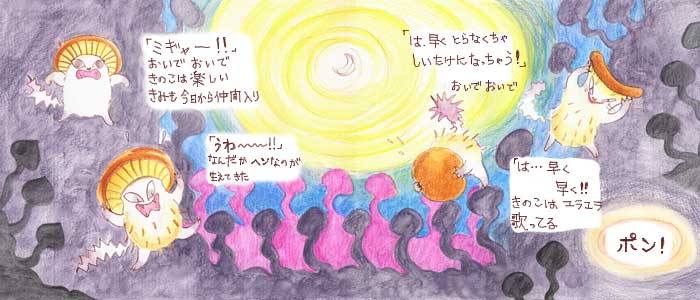 「ミギャ〜!!」
おいで おいで
きのこは楽しい
きみも今日から仲間入り
「うわ〜〜〜!!」
なんだか ヘンなのが
生えてきた
「は、早く とらなくちゃ
しいたけになっちゃう!」
おいで おいで
「は… 早く
早く!!
きのこは ユラユラ
歌ってる
ポン!